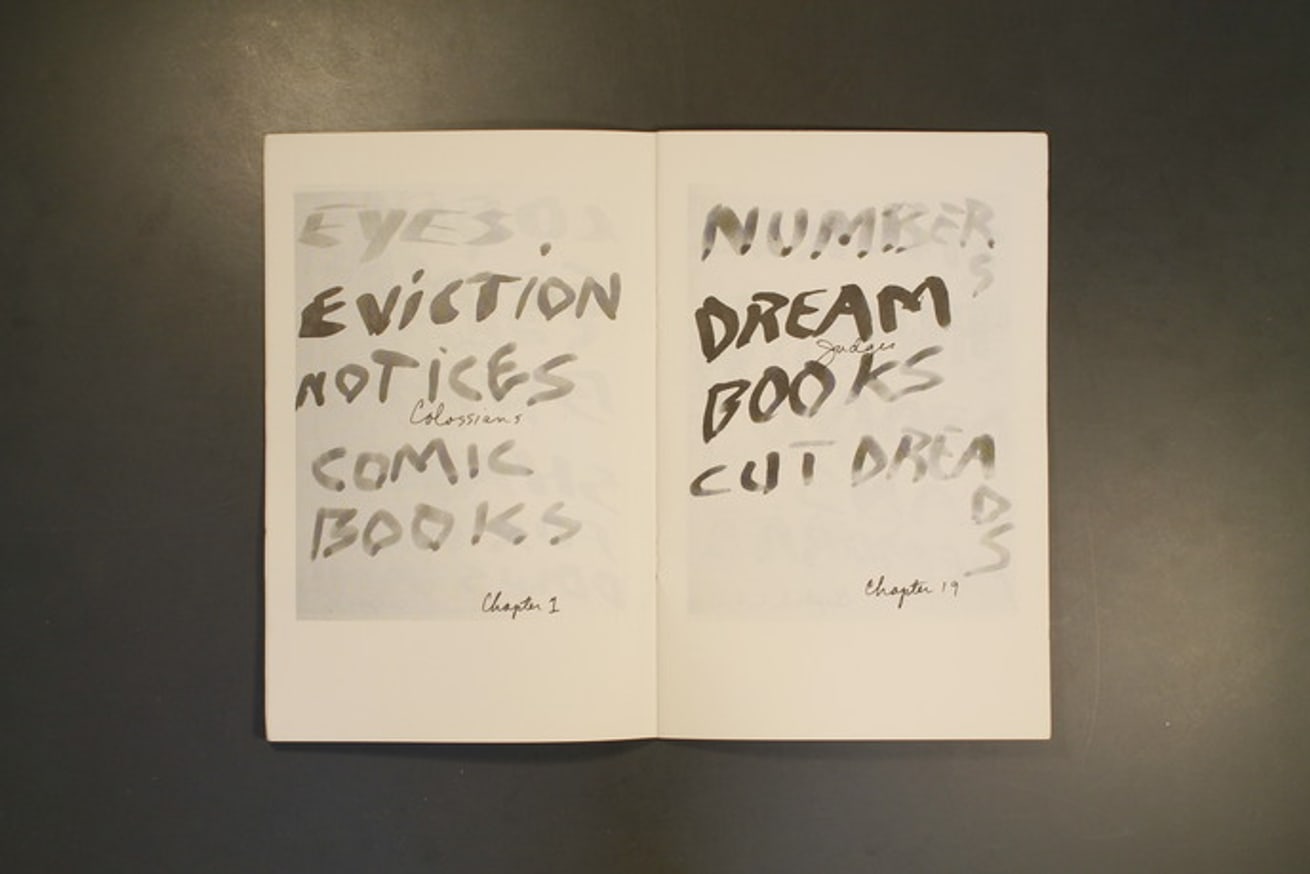 EYES.
EVICTION
NOTICES
Colossians
COMIC
BOOKS
Chapter 1
NUMBER
S
DREAM
Judges
BOOKS
CUT DREA
D
S
Chapter 19